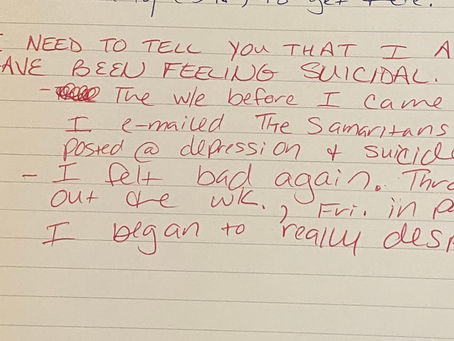 to get
I NEED TO TELL YOU THAT I A
AVE BEEN FEELING SUICIDAL.
- The w/e before I came
I e-mailed The Samaritans
posted @ depression & suicid
- I felt bad again. Thro
out the wk., Fri. in p
I began to really desp